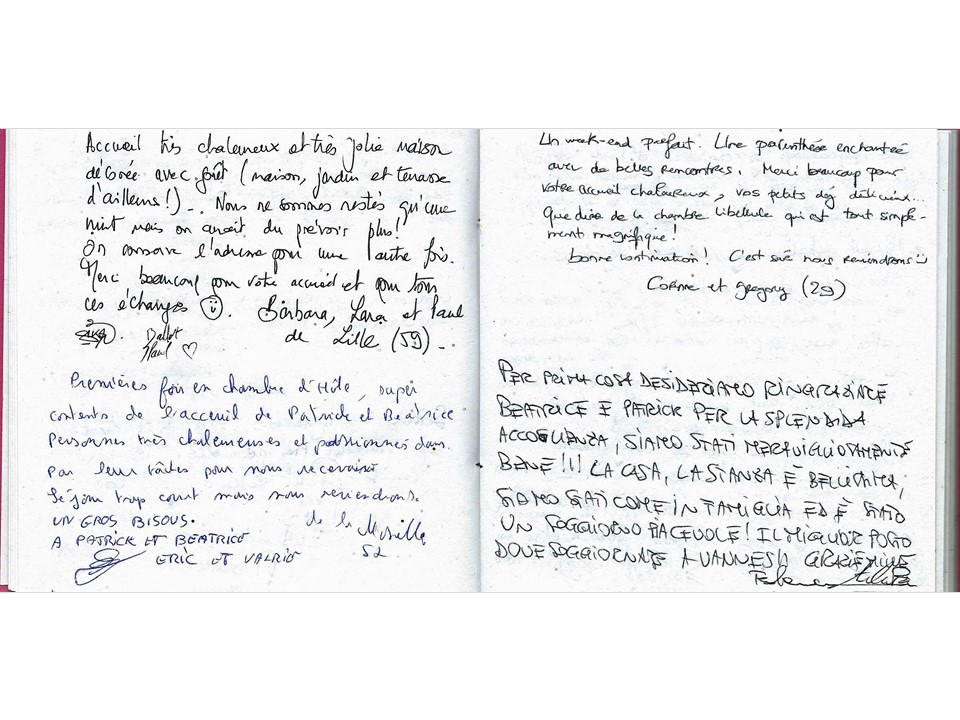 Accueil très chaleureux et très jolie maison
décorée avec goût (maison, jardin et terrasse
d'ailleurs!)... Nous ne sommes restés qu'une
nuit mais on aurait du prévoir plus!
On conserve l'adresse pour une autre fois.
Merci beaucoup pour votre accueil et pour tous
ces échanges. Barbara, Lara et Paul
de Lille (59)...
Premières fois en chambre d'Hôte, super
contents de l'acceuil de Patrick et Béatrice
Personnes très chaleureuses et passionnés dans
par leur tâches pour nous recevoir
Séjour trop court mais nous reviendrons.
UN GROS BISOUS.
A PATRICK ET BEATRICE
ERIC ET VALRIE
de la
Un week-end parfait. Une parenthèse enchantée
avec de belles rencontres. Merci beaucoup pour
votre accueil chaleureux, vos petits dèj délicieux...
Que dire de la chambre libellule qui est tout simple-
ment magnifique!
bonne continuation! C'est sûr nous reviendrons
Corine et Gregory (29)
PER PRIMA COSA DESIDERIAMO RINGRAZIARE
BEATRICE E PATRICK PER LA SPLENDIDA
ACCOGLIENZA, SIAMO STATI MERAVIGLIOSAMENTE
BENE!!! LA CASA, LA STANZA È BELLISSIMA,
SIAMO STATI COME IN FAMIGLIA ED È STATO
UN SOGGIORNO PIACEVOLE! IL MIGLIOR POSTO
DOVE SOGGIORNARE A VANNES!! GRAZIE MILLE